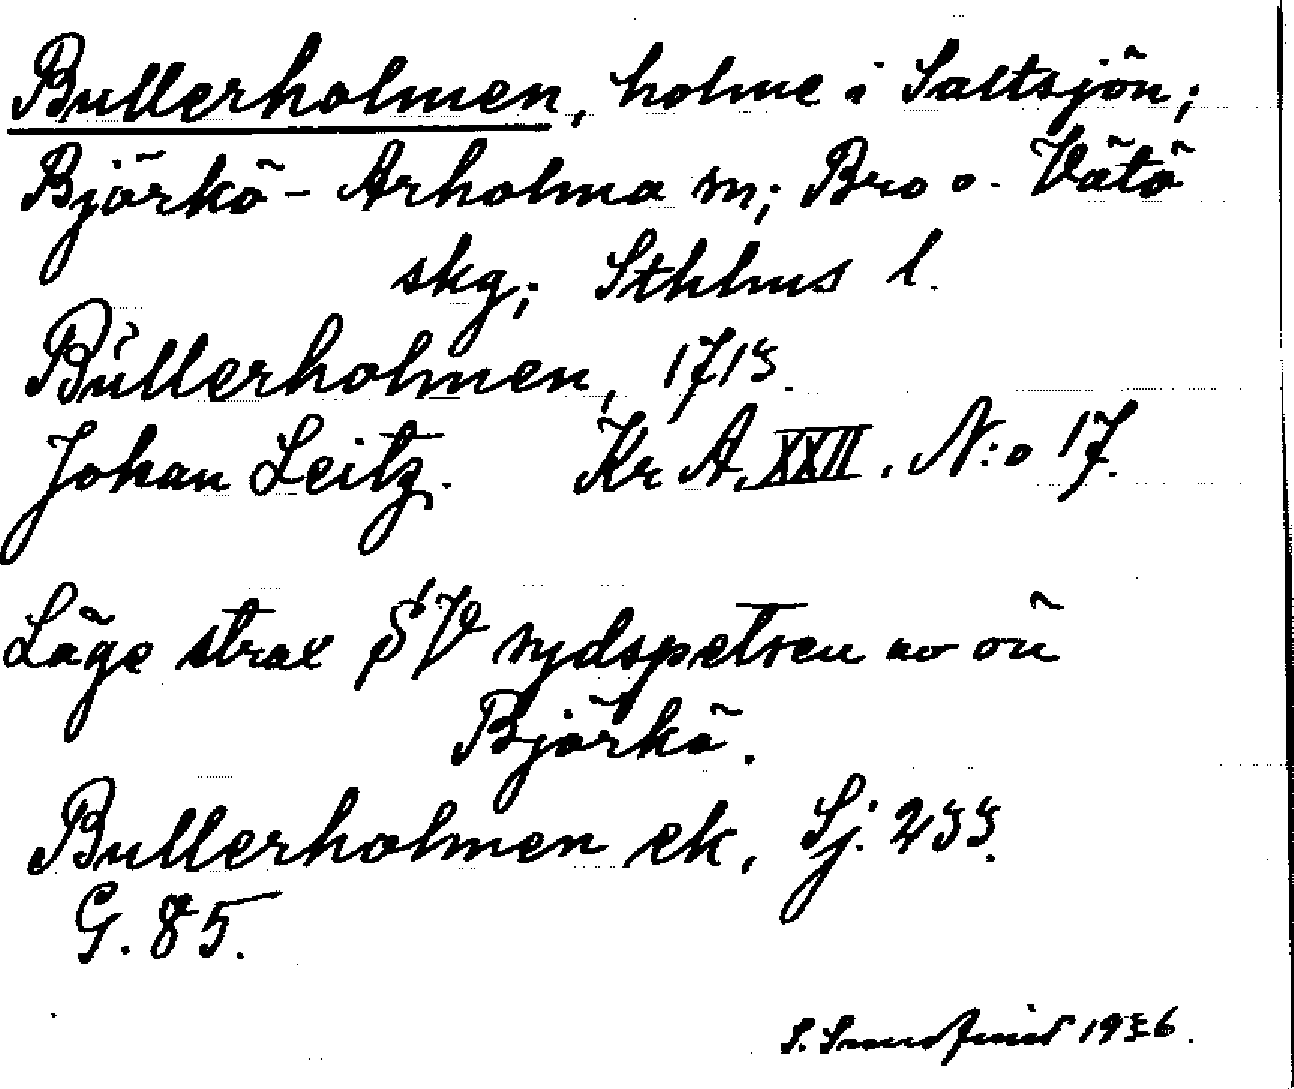 Bullerholmen, holme i Saltsjön;
Björkö - Arholma sn; Bro o. Vätö
skg; Sthlms l.
Bullerholmen, 1713.
Johan Leitz. Kr A. XXII. N:o 17.
Läge strax SV sydspetsen av ön
Björkö.
Bullerholmen ek. Sj. 233.
G. 85.
S. 1936.